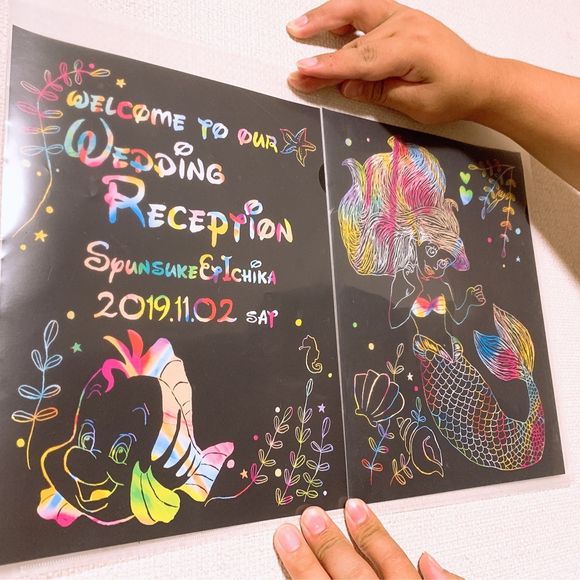 WELCOME TO OUR
WEDDING
RECEPTION
SyunSUKE&IcHiKA
2019.11.02 SAT